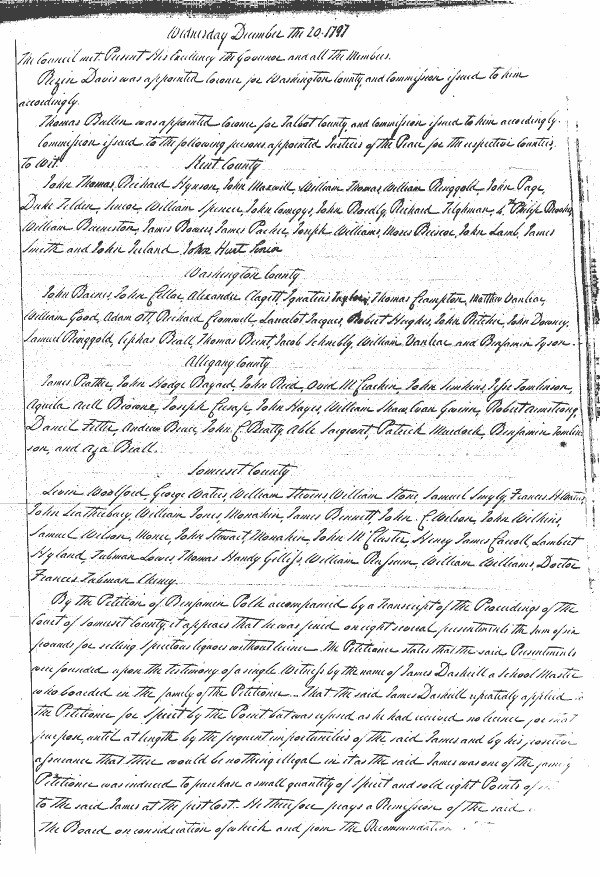 Wednesday December the 20. 1797
The Council met. Present His Excellency the Governor and all the Members.
Rezin Davis was appointed Coroner for Washington County, and Commission issued to him
accordingly.
Thomas Bullen was appointed Coroner for Talbot County and Commission issued to him accordingly.
Commission issued to the following persons appointed Justices of the Peace for the respective Counties,
to Wit
Kent County
John Thomas, Richard Hynson, John Maxwell, William Thomas, William Ringgold, John Page,
Duke Tilden, Senior, William Spencer, John Comegys, John Bordly, Richard Tilghman, 4th Philip Brooks,
William Barneston, James Bowers, James Parker, Joseph Williams, Moses Briscoe, John Lamb, James
Smith and John Ireland John Hurt Senior
Washington County
John Barnes, John Cellar, Alexander Clagett, Ignatius Taylor, Thomas Crampton, Matthew Vanlear,
William Good, Adam Ott, Richard Cromwell, Lancelot Jacques, Robert Hughes, John Ritchie, John Downey,
Samuel Ringgold, Cephas Beall, Thomas Brent, Jacob Schnebly, William Vanlear and Benjamin Tyson.
Allegany County
James Prather, John Hodge Bayard, John Reid, Ovid McCracken, John Simkins, Jesse Tomlinson,
Aquila Brown, Joseph Cresap, John Hayes, William Shaw, Evan Gwinn, Robert Armstrong,
Daniel Fetter, Andrew Bruce, John C. Beatty, Able Sargeant, Patrick Murdock, Benjamin Tomlin
son, and Aza Beall.
Somerset County
Levin Woolford, George Waters, William Stevens, William Stone, Samuel Smyly, Francis H. Waters,
John Leatherbury, William Jones, Monakin, James Bennett, John C. Wilson, John Wilkins,
Samuel Wilson, Manee, John Stewart Monakin, John McCluster, Henry James Carroll, Lambert
Hyland, Tubman Lowes, Thomas Handy Gilliss, William William Williams, Doctor
Frances Tubman Cheney.
By the Petition of Benjamin Polk accompanied by a transcript of the Proceedings of the
Court of Somerset County, it appears that he was fined on eight several presentments the sum of six
pounds for selling Spirituous liquors without licence. The Petitioner states that the said Presentments
were founded upon the testimony of a single Witness by the name of James Daskuill a School Master
who boarded in the family of the Petitioner. That the said James Daskuill repeatedly applied to
the Petitioner for Spirit by the Point but was refused as he had received no licence for that
purpose, until at length by the frequent importunities of the said James and by his positive
assurance that there would be nothing illegal in it as the said James was one of the family
Petitioner was induced to purchase a small quantity of Spirit and sold eight Points of
to the said James at the first Cost. He therefore prays a Remission of the said
The Board on consideration of which and from the Recommendation